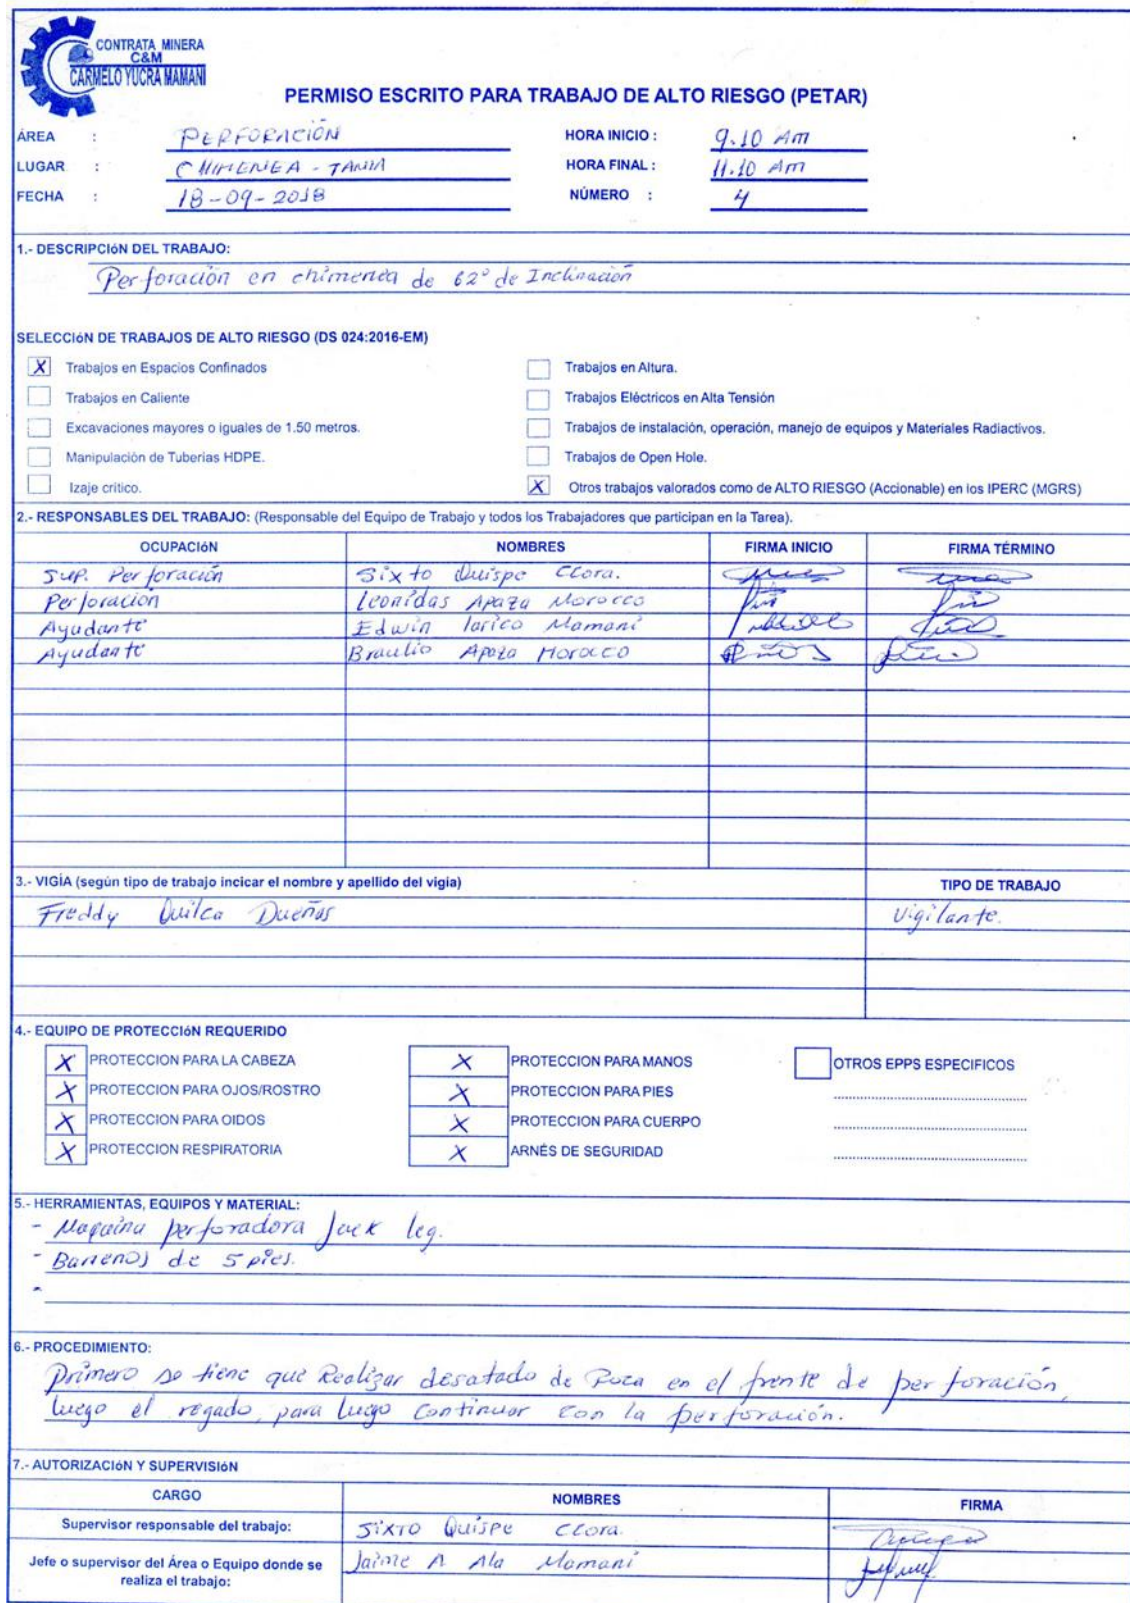 CONTRATA MINERA
C&M
CARMELO YUCRA MAMANI
PERMISO ESCRITO PARA TRABAJO DE ALTO RIESGO (PETAR)
ÁREA : PERFORACIÓN HORA INICIO : 9.10 Am
LUGAR : CHIMENEA - TANIA HORA FINAL : 11.10 Am
FECHA : 18-09-2018 NÚMERO : 4
1.- DESCRIPCIóN DEL TRABAJO:
Perforación en chimenea de 62° de Inclinación
SELECCIóN DE TRABAJOS DE ALTO RIESGO (DS 024:2016-EM)
X Trabajos en Espacios Confinados Trabajos en Altura.
Trabajos en Caliente Trabajos Eléctricos en Alta Tensión
Excavaciones mayores o iguales de 1.50 metros. Trabajos de instalación, operación, manejo de equipos y Materiales Radiactivos.
Manipulación de Tuberías HDPE. Trabajos de Open Hole.
Izaje critico. X Otros trabajos valorados como de ALTO RIESGO (Accionable) en los IPERC (MGRS)
2.- RESPONSABLES DEL TRABAJO: (Responsable del Equipo de Trabajo y todos los Trabajadores que participan en la Tarea).
OCUPACIóN NOMBRES FIRMA INICIO FIRMA TÉRMINO
Sup. Perforación Sixto Quispe Ccora.
Perforación Leonidas Apaza Morocco
Ayudante Edwin Tarico Mamani
Ayudante Braulio Apaza Morocco
3.- VIGÍA (según tipo de trabajo incicar el nombre y apellido del vigia) TIPO DE TRABAJO
Freddy Quilca Dueñas Vigilante.
4.- EQUIPO DE PROTECCIóN REQUERIDO
X PROTECCION PARA LA CABEZA X PROTECCION PARA MANOS OTROS EPPS ESPECIFICOS
X PROTECCION PARA OJOS/ROSTRO X PROTECCION PARA PIES
X PROTECCION PARA OIDOS X PROTECCION PARA CUERPO
X PROTECCION RESPIRATORIA X ARNÉS DE SEGURIDAD
5.- HERRAMIENTAS, EQUIPOS Y MATERIAL:
- Maquina perforadora Jack leg.
- Barrenos de 5 pies.
-
6.- PROCEDIMIENTO:
Primero se tiene que Realizar desatado de Roca en el frente de perforación,
luego el regado, para luego continuar con la perforación.
7.- AUTORIZACIóN Y SUPERVISIóN
CARGO NOMBRES FIRMA
Supervisor responsable del trabajo: Sixto Quispe Ccora.
Jefe o supervisor del Área o Equipo donde se Jaime A Ala Mamani
realiza el trabajo: